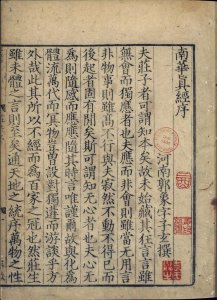 南華真經序
河南郭象字子玄撰
夫莊子者可謂知本矣故未始藏其狂言言雖
無會而獨應者也夫應而非會則雖當無用言
非物事則雖高不行與夫寂然不動不得已而
後起者固有間矣斯可謂知無心者也夫心無
為則隨感而應應隨其時言唯謹爾故與化為
體流萬代而冥物豈曾設對獨遘而游談乎方
外哉此其所以不經而為百家之冠也然莊生
雖未體之言則至矣通天地之統序萬物之性